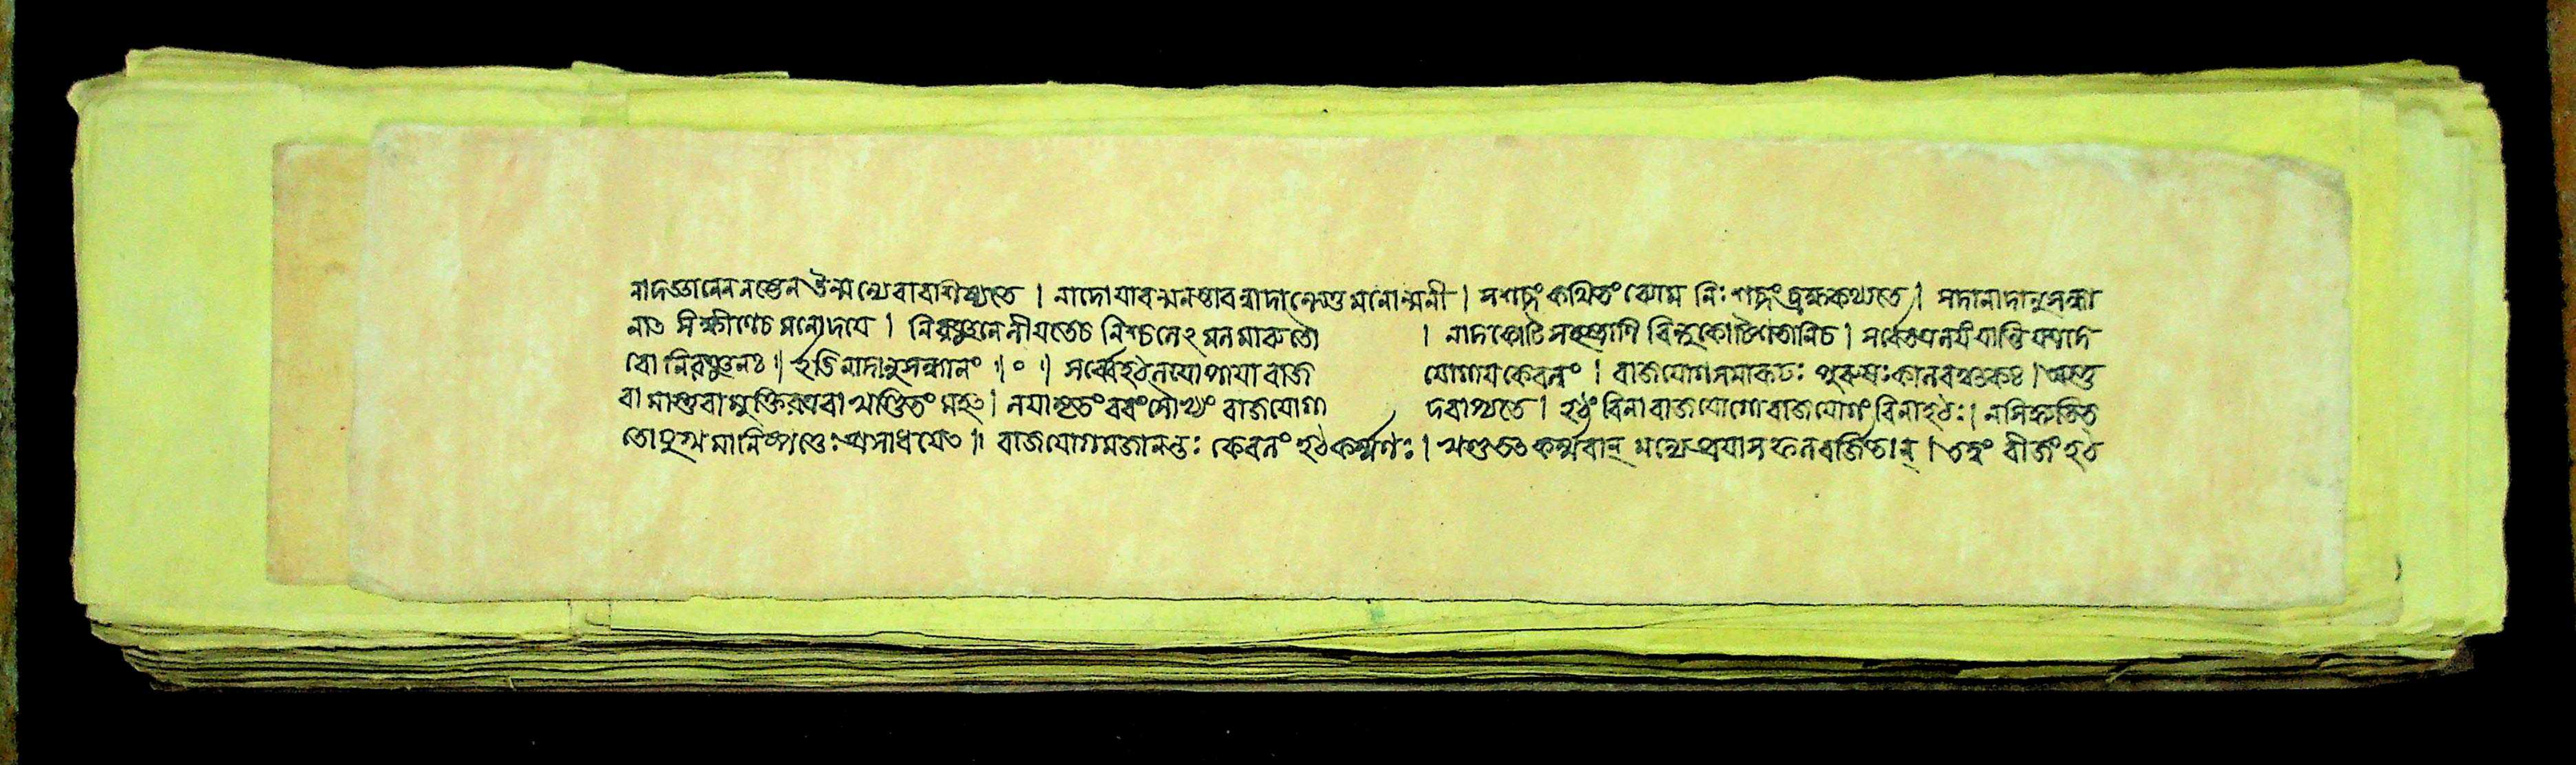 নাদজ্ঞানেন নষ্টেন উন্মন্যেবাবাশিষ্যতে । নাদো যাবন্মনস্তাবন্নাদান্তেস্তু মনোন্মনী । সশব্দং কথিতং ব্যোম নিঃশব্দং ব্রহ্মকথ্যতে । সদানাদানুসন্ধা
নাত সংক্ষীণেচ মনোদয়ে । নিরঞ্জনেনীয়তেচ নিশ্চলেঽ মনমারুতৌ । নাদকোটি সহস্রাণি বিন্দুকোটিশতানিচ । সর্বেতত্রলয়ং যান্তি যত্রদে
বো নিরঞ্জনঃ ॥ ইতিনাদানুসন্ধানং ॥ ০ ॥ সর্ব্বেহঠলয়োপায়া বাজ যোগায় কেবলং । বাজযোগসমারূঢঃ পুরুষঃকালবঞ্চকঃ । অস্তু
বা মাস্তুবা মুক্তিরত্রবা খণ্ডিতং মহৎ । লয়ামৃতং ববং সৌখ্যং বাজযোগা দবাপ্যতে । হঠং বিনা বাজযোগো বাজযোগং বিনাহঠঃ । নসিদ্ধ্যতিত
তোযুগ্মমানিষ্পত্তেঃ প্রসাধয়েত ॥ বাজযোগমজানন্তঃ কেবলং হঠকর্ম্মণঃ । এতান কর্ম্মবান্ মন্যে প্রয়াসফলবর্জিতান্ । তত্ত্বং বীজং হঠ